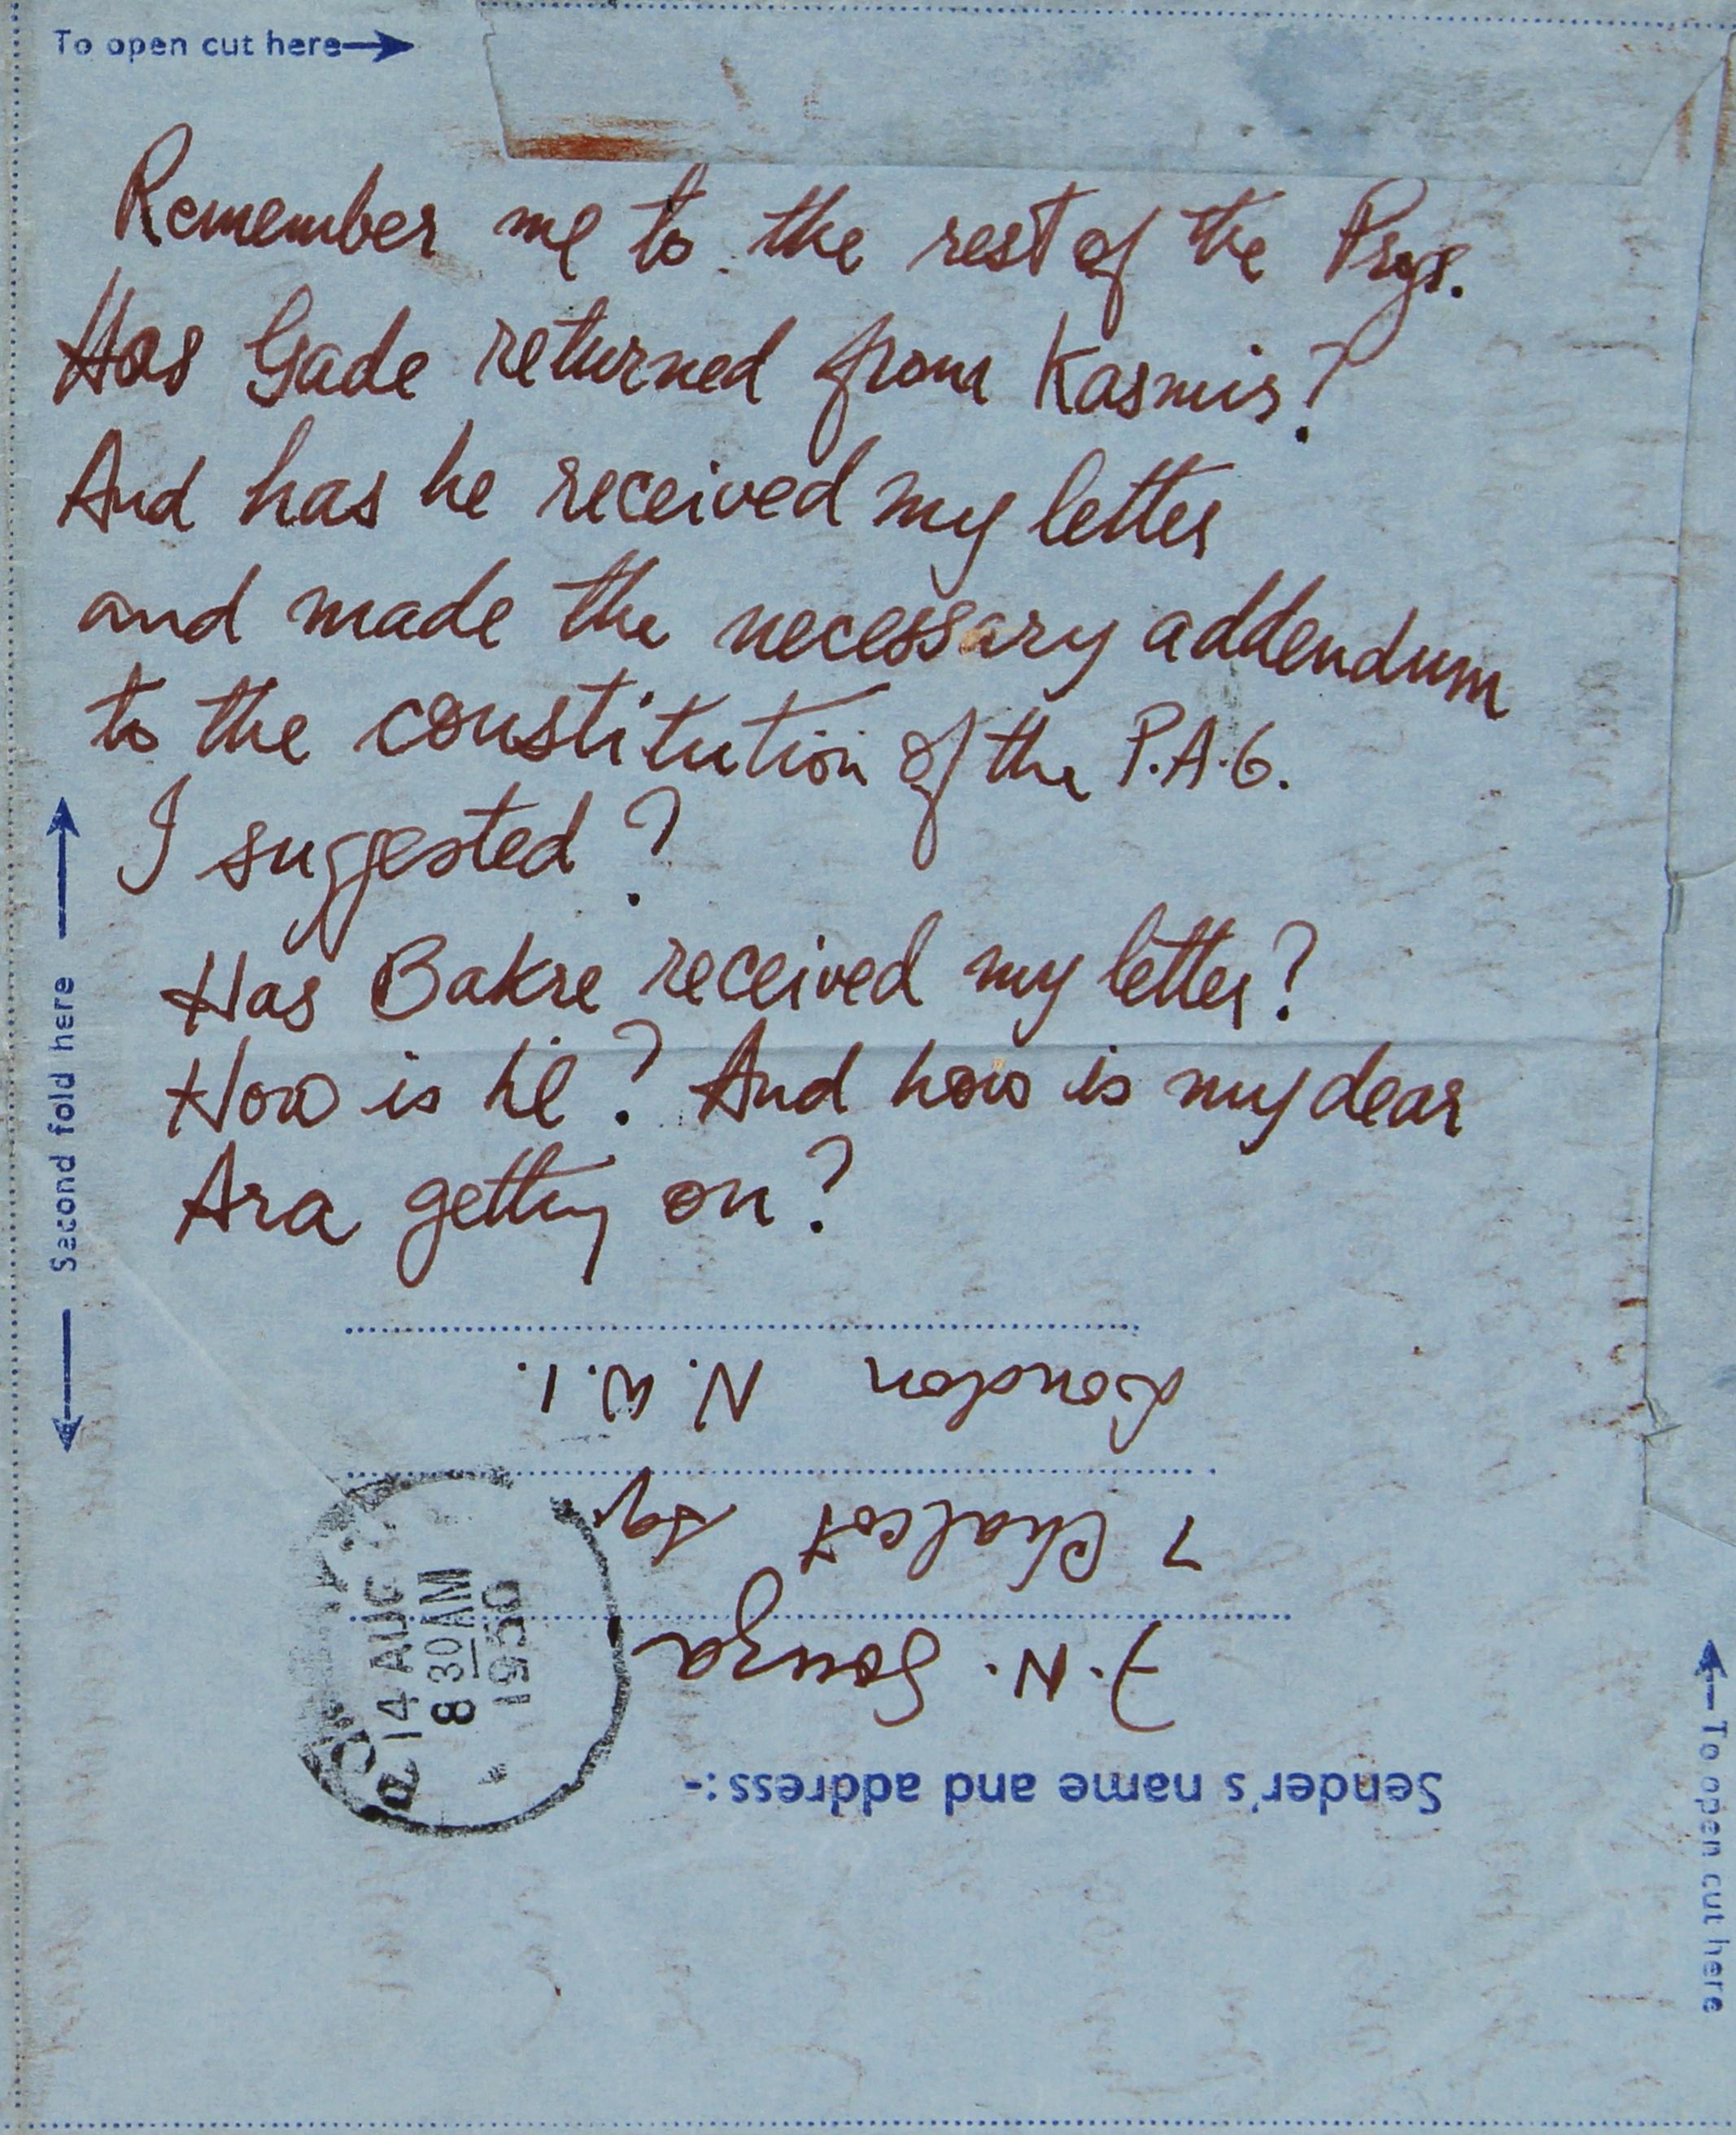 To open cut here
Remember me to the rest of the Progs.
Has Gade returned from Kasmir?
And has he received my letter
and made the necessary addendum
to the constitution of the P.A.G.
I suggested?
Has Bakre received my letter?
How is he? And how is my dear
Ara getting on?
Second fold here
Sender's name and address:-
F. N. Souza
7 Chalcot Sqr
London N.W.1.
14 AUG
8 30 AM
1950
To open cut here